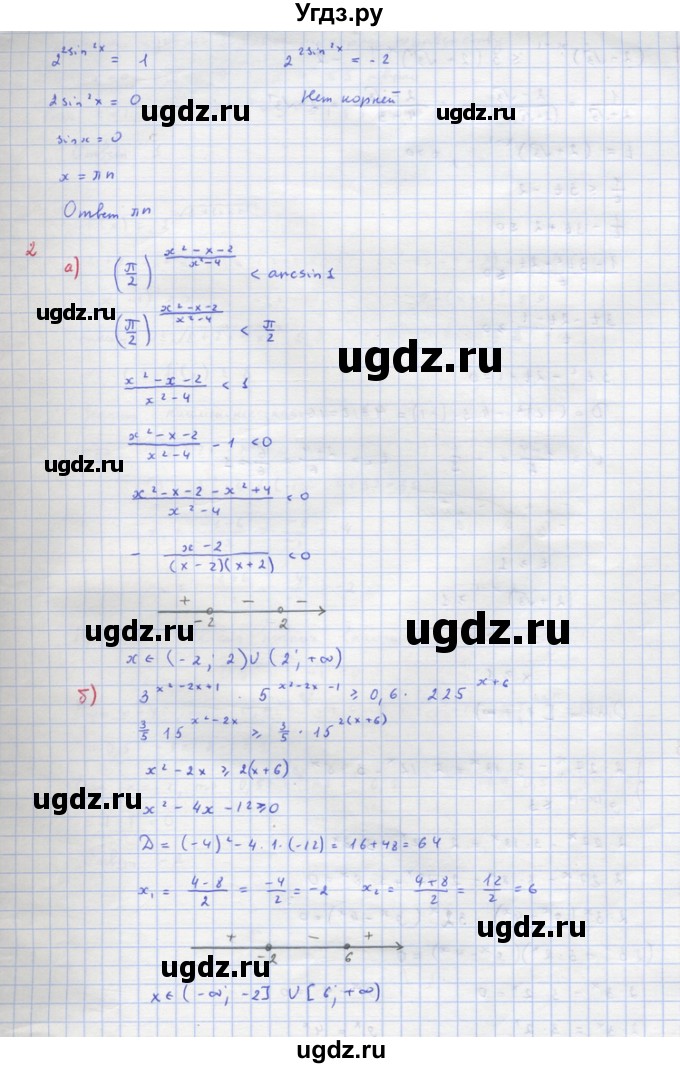 Угдз.ру
2^{2sin²x} = 1    2^{2sin²x} = -2
2sin²x = 0    Нет корней
ugdz.ru ugdz.ru
sinx = 0
x = πn
Ответ πn
2
а) (π/2)^{(x²-x-2)/(x²-4)} < arcsin1
ugdz.ru
(π/2)^{(x²-x-2)/(x²-4)} < π/2
ugdz.ru
(x²-x-2)/(x²-4) < 1
(x²-x-2)/(x²-4) - 1 < 0
ugdz.ru
(x²-x-2-x²+4)/(x²-4) < 0
- (x-2)/((x-2)(x+2)) < 0
+ - -
-2 2
ugdz.ru ugdz.ru
x ∈ (-2; 2)∪(2; +∞)
б) 3^{x²-2x+1} · 5^{x²-2x-1} ≥ 0,6 · 225^{x+6}
3/5 · 15^{x²-2x} ≥ 3/5 · 15^{2(x+6)}
x² - 2x ≥ 2(x+6)
ugdz.ru
x² - 4x - 12 ≥ 0
D = (-4)² - 4·1·(-12) = 16+48 = 64
x₁ = (4-8)/2 = -4/2 = -2    x₂ = (4+8)/2 = 12/2 = 6
ugdz.ru
+ - +
-2 6
ugdz.ru
x ∈ (-∞; -2] ∪ [6; +∞)
ugdz.ru